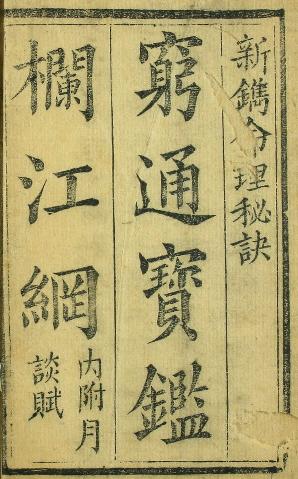 新鐫命理秘訣
窮通寶鑑
欄江網
內附月
談賦